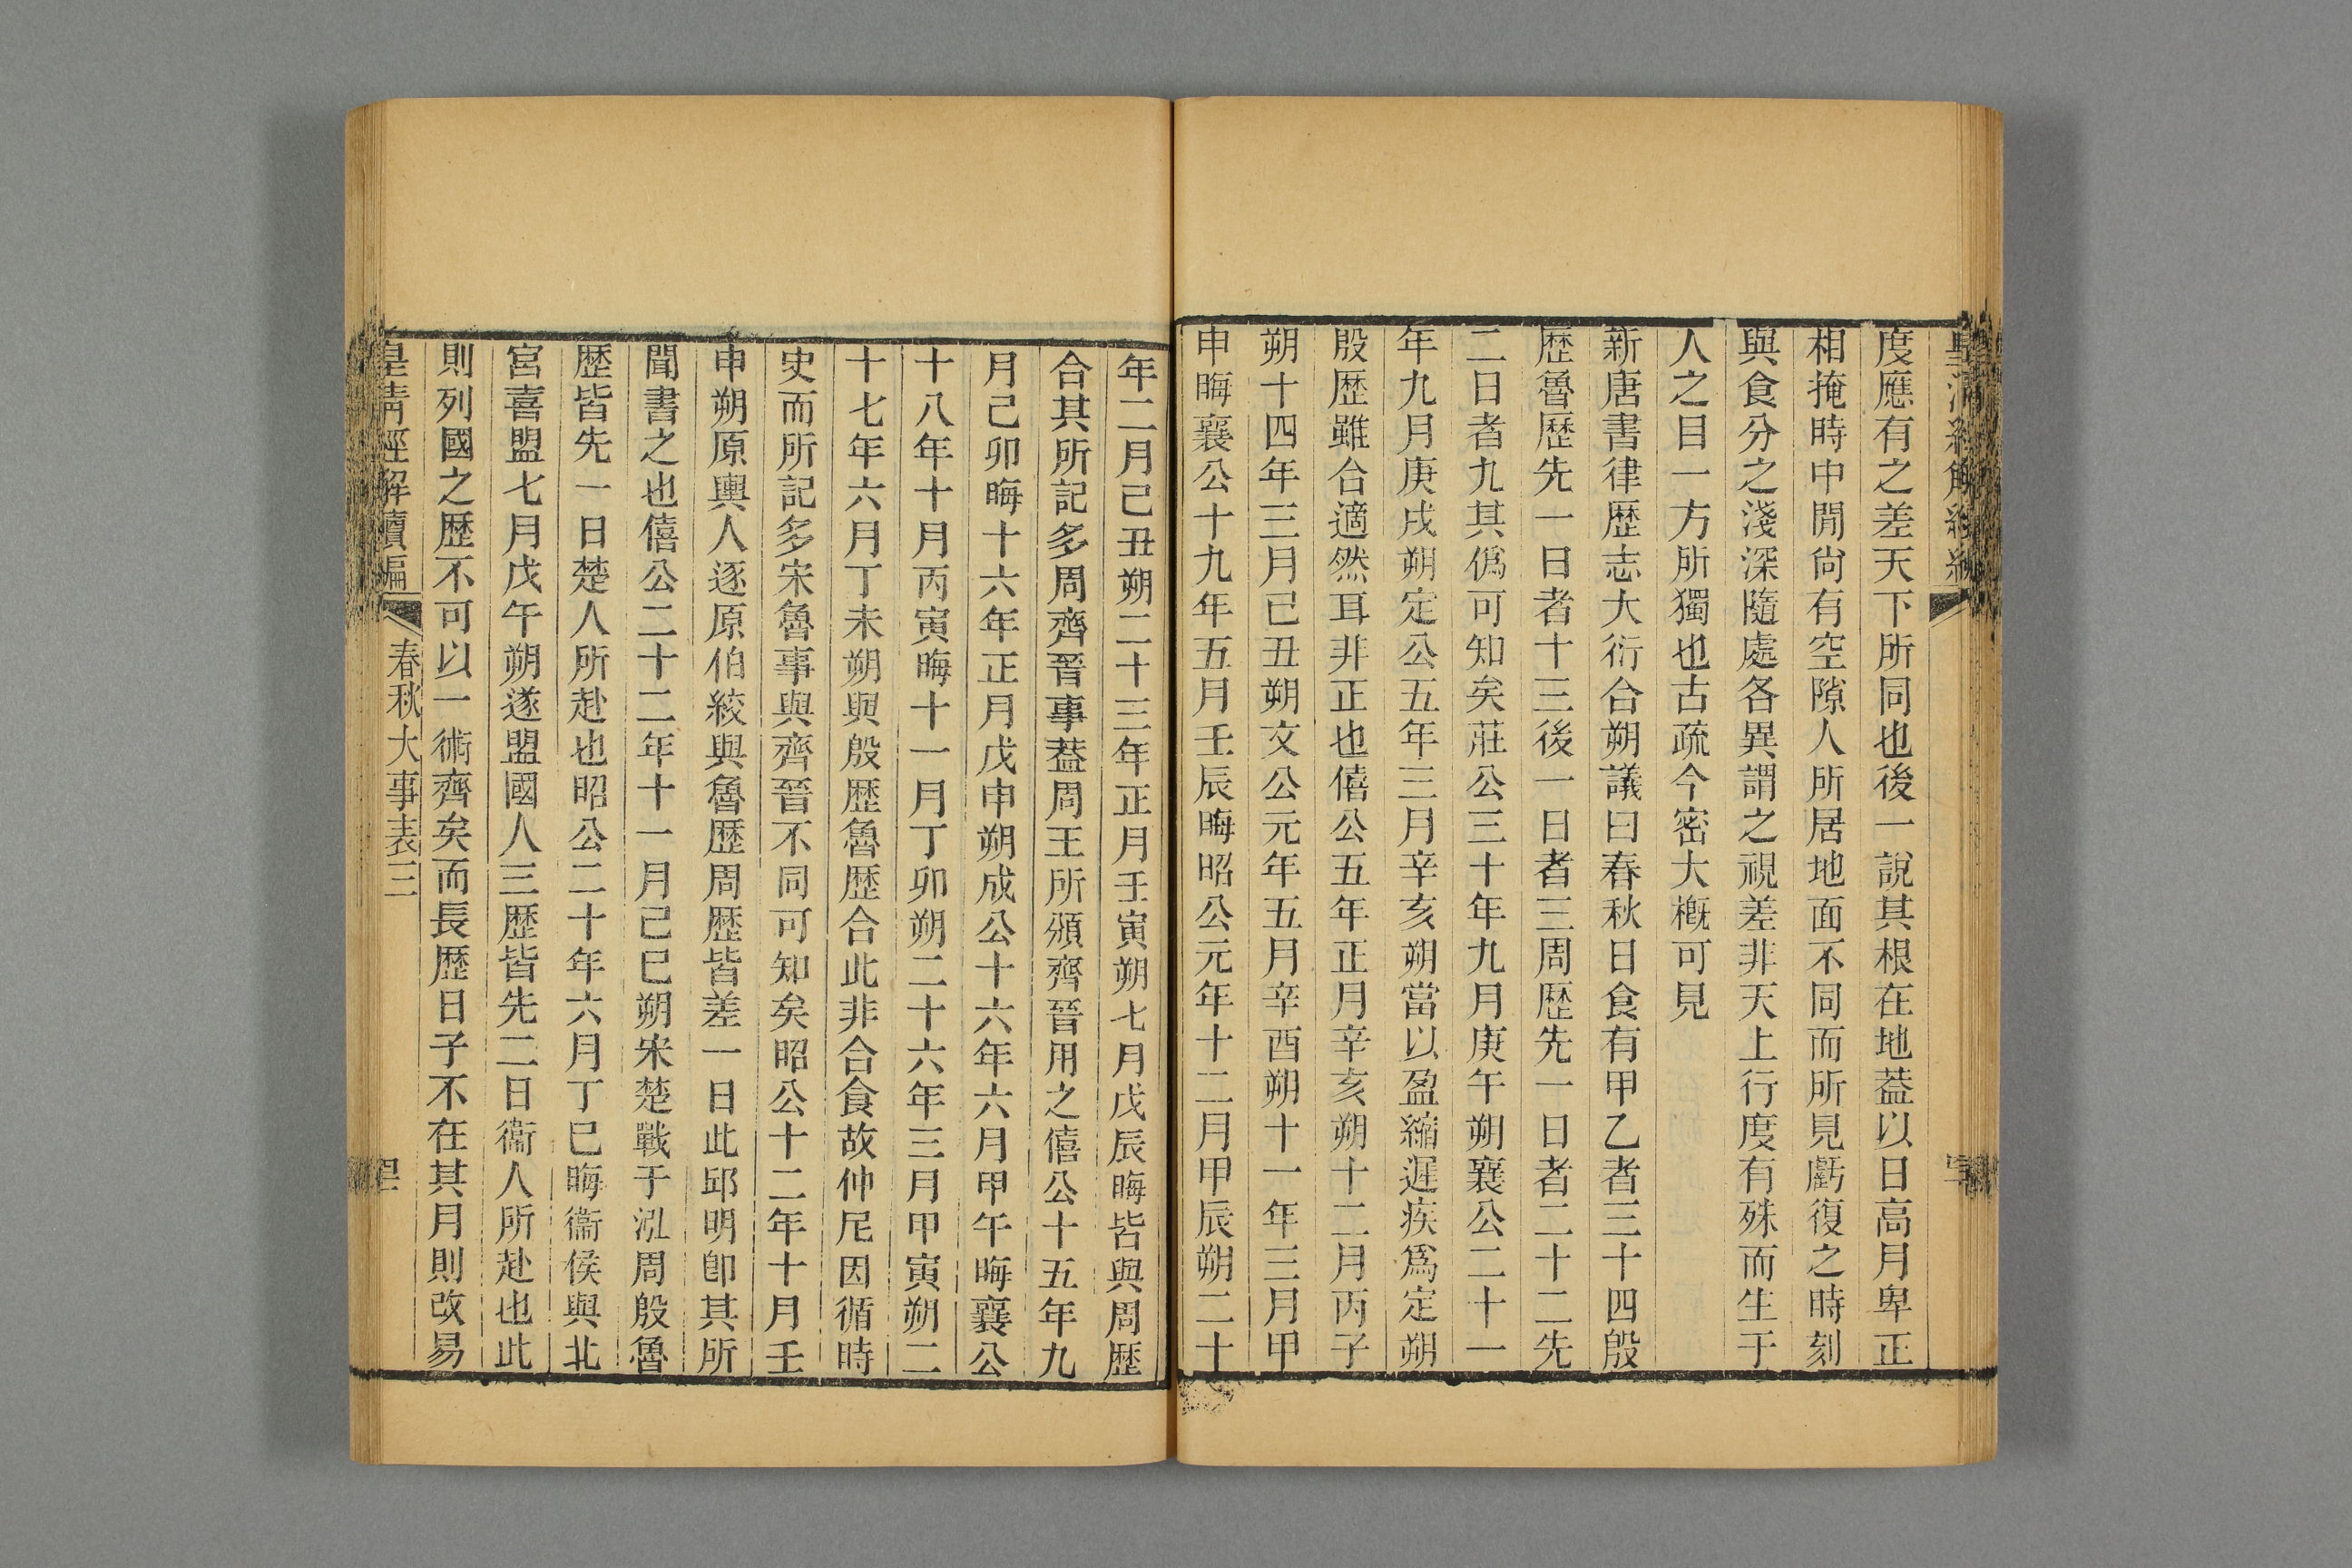 度應有之差天下所同也後一說其根在地葢以日高月卑正
相掩時中閒尙有空隙人所居地面不同而所見虧復之時刻
與食分之淺深隨處各異謂之視差非天上行度有殊而生于
人之目一方所獨也古疏今密大槪可見
新唐書律歷志大衍合朔議曰春秋日食有甲乙者三十四殷
歷魯歷先一日者十三後一日者三周歷先一日者二十二先
二日者九其僞可知矣莊公三十年九月庚午朔襄公二十一
年九月庚戌朔定公五年三月辛亥朔當以盈縮遲疾爲定朔
殷歷雖合適然耳非正也僖公五年正月辛亥朔十二月丙子
朔十四年三月己丑朔文公元年五月辛酉朔十一年三月甲
申晦襄公十九年五月壬辰晦昭公元年十二月甲辰朔二十
年二月己丑朔二十三年正月壬寅朔七月戊辰晦皆與周歷
合其所記多周齊晉事葢周王所頒齊晉用之僖公十五年九
月己卯晦十六年正月戊申朔成公十六年六月甲午晦襄公
十八年十月丙寅晦十一月丁卯朔二十六年三月甲寅朔二
十七年六月丁未朔與殷歷魯歷合此非合食故仲尼因循時
史而所記多宋魯事與齊晉不同可知矣昭公十二年十月壬
申朔原輿人逐原伯絞與魯歷周歷皆差一日此邱明卽其所
聞書之也僖公二十二年十一月己巳朔宋楚戰于泓周殷魯
歷皆先一日楚人所赴也昭公二十年六月丁巳晦衞侯與北
宮喜盟七月戊午朔遂盟國人三歷皆先二日衞人所赴也此
則列國之歷不可以一術齊矣而長歷日子不在其月則改易
皇淸經解續編 春秋大事表三